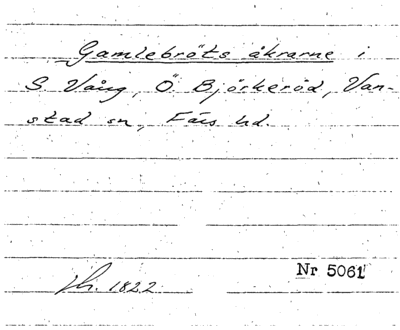 Gamlebröts åkrarne i
S Vång, Ö Björkeröd, Van-
stad sn, Färs hd.
Nr 5061
1822